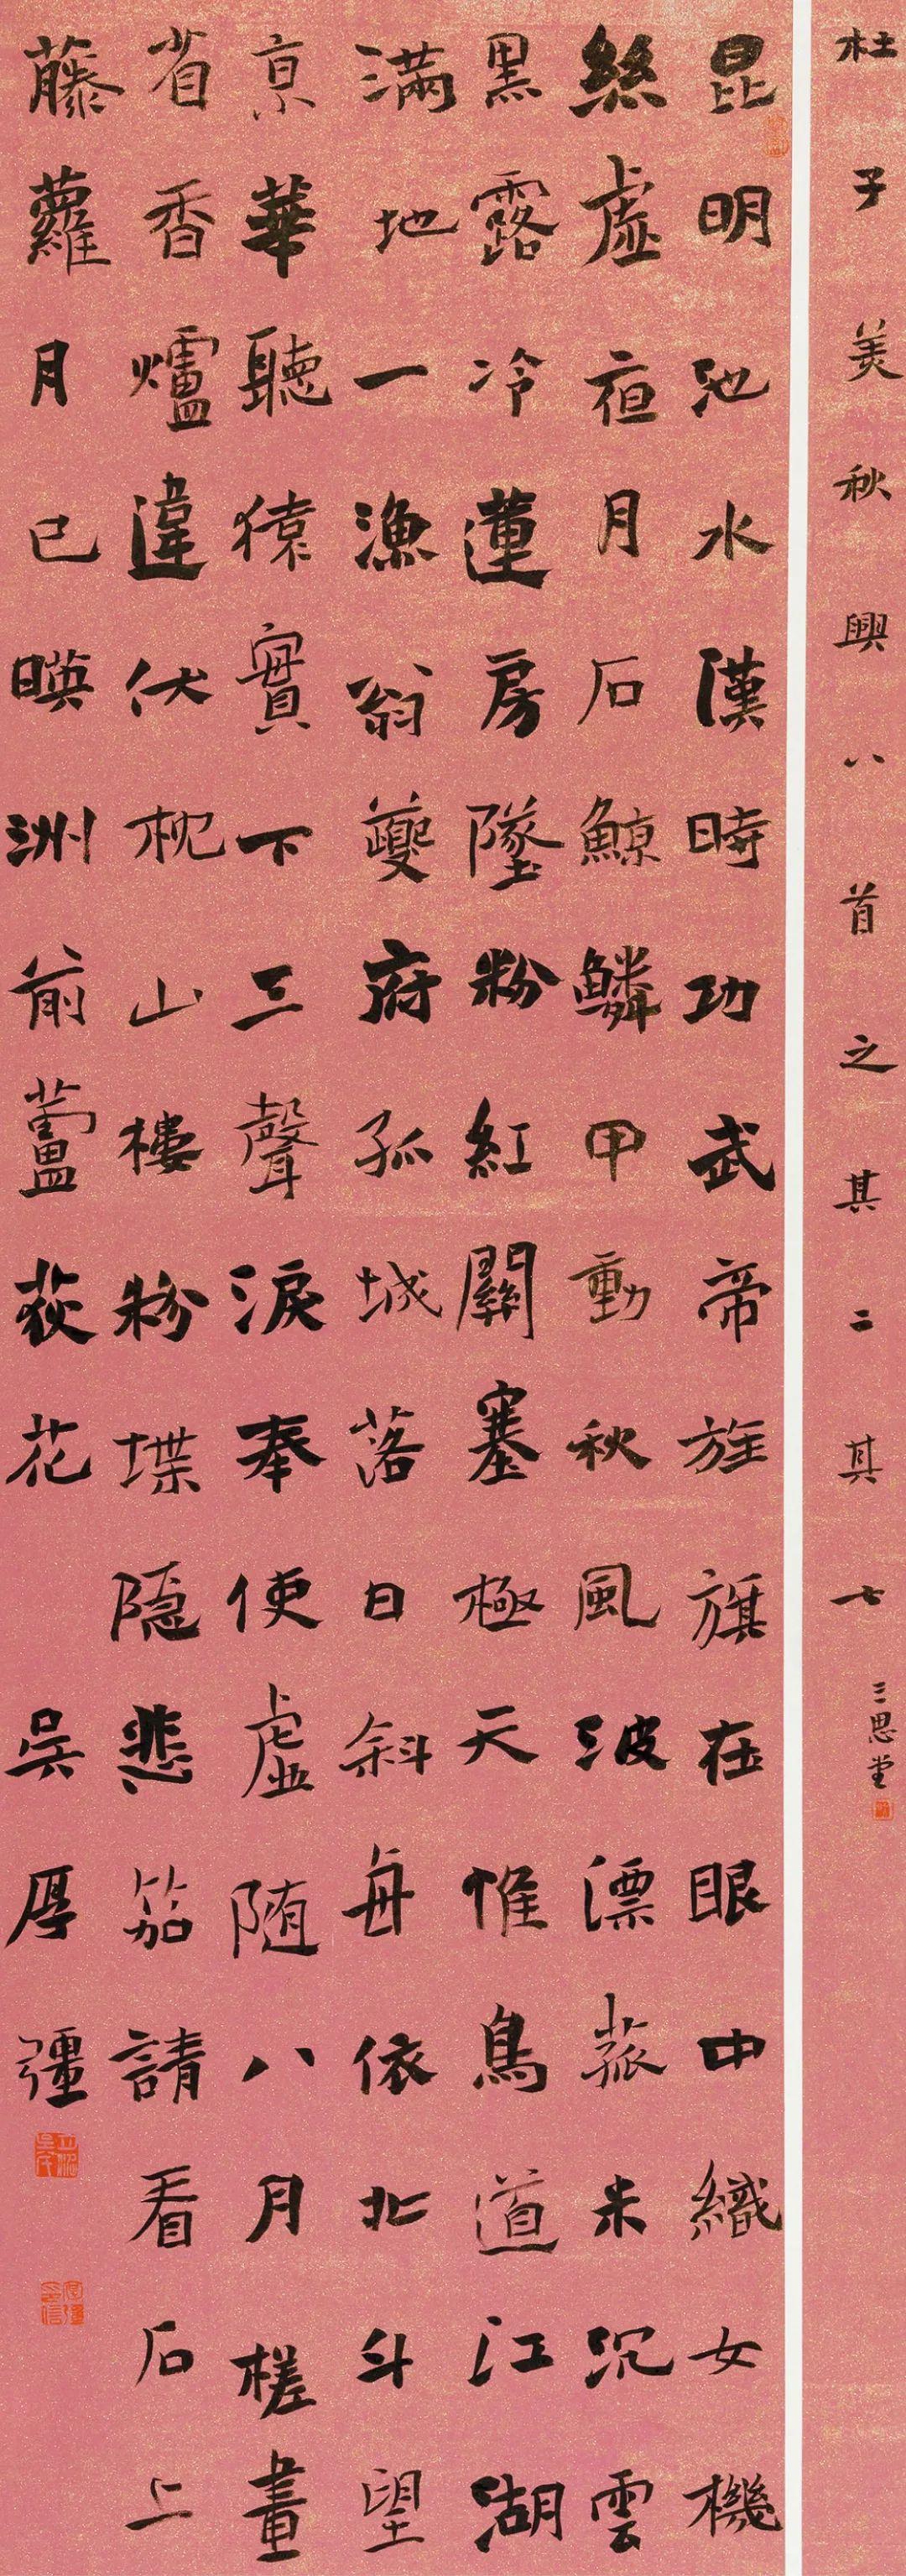 杜子美秋興八首之其二其七
三思堂
昆明池水漢時功武帝旌旗在眼中織女機
絲虛夜月石鯨鱗甲動秋風波漂菰米沉雲
黑露冷蓮房墜粉紅關塞極天惟鳥道江湖
滿地一漁翁夔府孤城落日斜每依北斗望
京華聽猿實下三聲淚奉使虛隨八月槎畫
省香爐違伏枕山樓粉堞隱悲笳請看石上
藤蘿月已暎洲前蘆荻花
吳厚彊